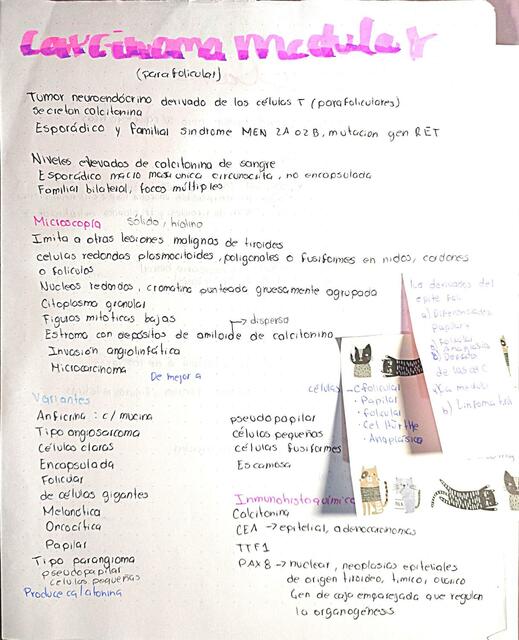 Carcinoma medular
(parafolicular)
Tumor neuroendócrino derivado de las células T (parafoliculares)
secretan calcitonina
Esporádico y familial sindrome MEN 2A o 2B, mutacion gen RET
Niveles elevados de calcitonina de sangre
Esporádico macro masa unica circunscrita, no encapsulada
Familial bilateral, focos múltiples
Microscopía sólido, hialino
Imita a otras lesiones malignas de tiroides
celulas redondas plasmocitoides, poligonales o fusiformes en nidos, cordones
o folículos
Nucleos redondos, cromatina punteada gruesamente agrupada
Citoplasma granular
Figuras mitoticas bajas
dispersa
Estroma con depósitos de amiloide de calcitonina
Invasión angiolinfática
Microcarcinoma
De mejor a
Variantes
Anficrina: c/ mucina
Tipo angiosarcoma
Células claras
Encapsulada
Folicular
de células gigantes
Melanótica
Oncocítica
Papilar
Tipo parangioma
pseudopapilar
celulas pequeñas
Produce calatonina
pseudopapilar
células pequeñas
células fusiformes
Escamosa
Inmunohistoquímica
Calcitonina
CEA → epitelial, adenocarcinomas
TTF1
PAX8 → nuclear, neoplasias epiteliales
de origen tiroideo, timico, ovarico
Gen de caja emparejada que regulan
la organogénesis.
derivados del
epite foli
a) Diferenciados
Papilar
Folicular
de las cel C
b) Linfoma
células → C folicular
· Papilar
· Folicular
· Cel Hürthle
· Anaplásico